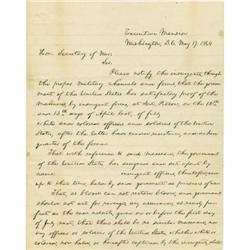 Executive Mansion
Washington, D.C. May 17, 1864
Hon. Secretary of War.
Sir.
Please notify the insurgents, through
the proper military channels and forms, that the government
of the United States has satisfactory proof of the
massacre, by insurgent forces, at Fort Pillow, on the 12th
and 13th days of April last, of fully
white and colored officers and soldiers of the
United States, after the latter had ceased resistance, and asked
quarter of the former.
That with reference to said massacre, the government
of the United States has assigned and set apart by
name insurgent officers, theretofore, and
up to that time, held by said government as prisoners of war.
That, as blood can not restore blood, and government
should not act for revenge, any assurance, as nearly per-
fect as the case admits, given on or before the first day
of July next, that there shall be no similar massacre, nor
any officer or soldier of the United States, whether white or
colored, now held, or hereafter captured by the insurgents, shall